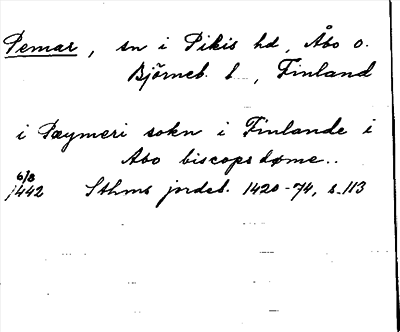 Pemar, sn i Pikis hd, Åbo o.
Björneb. l , Finland
i Pæymeri sokn i Finlande i
Abo biscopsdøme..
6/8
1442 Sthms jordeb. 1420-74, s. 113